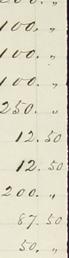 100. "
100. "
100. "
250. "
12.50
12.50
200. "
87.50
50. "